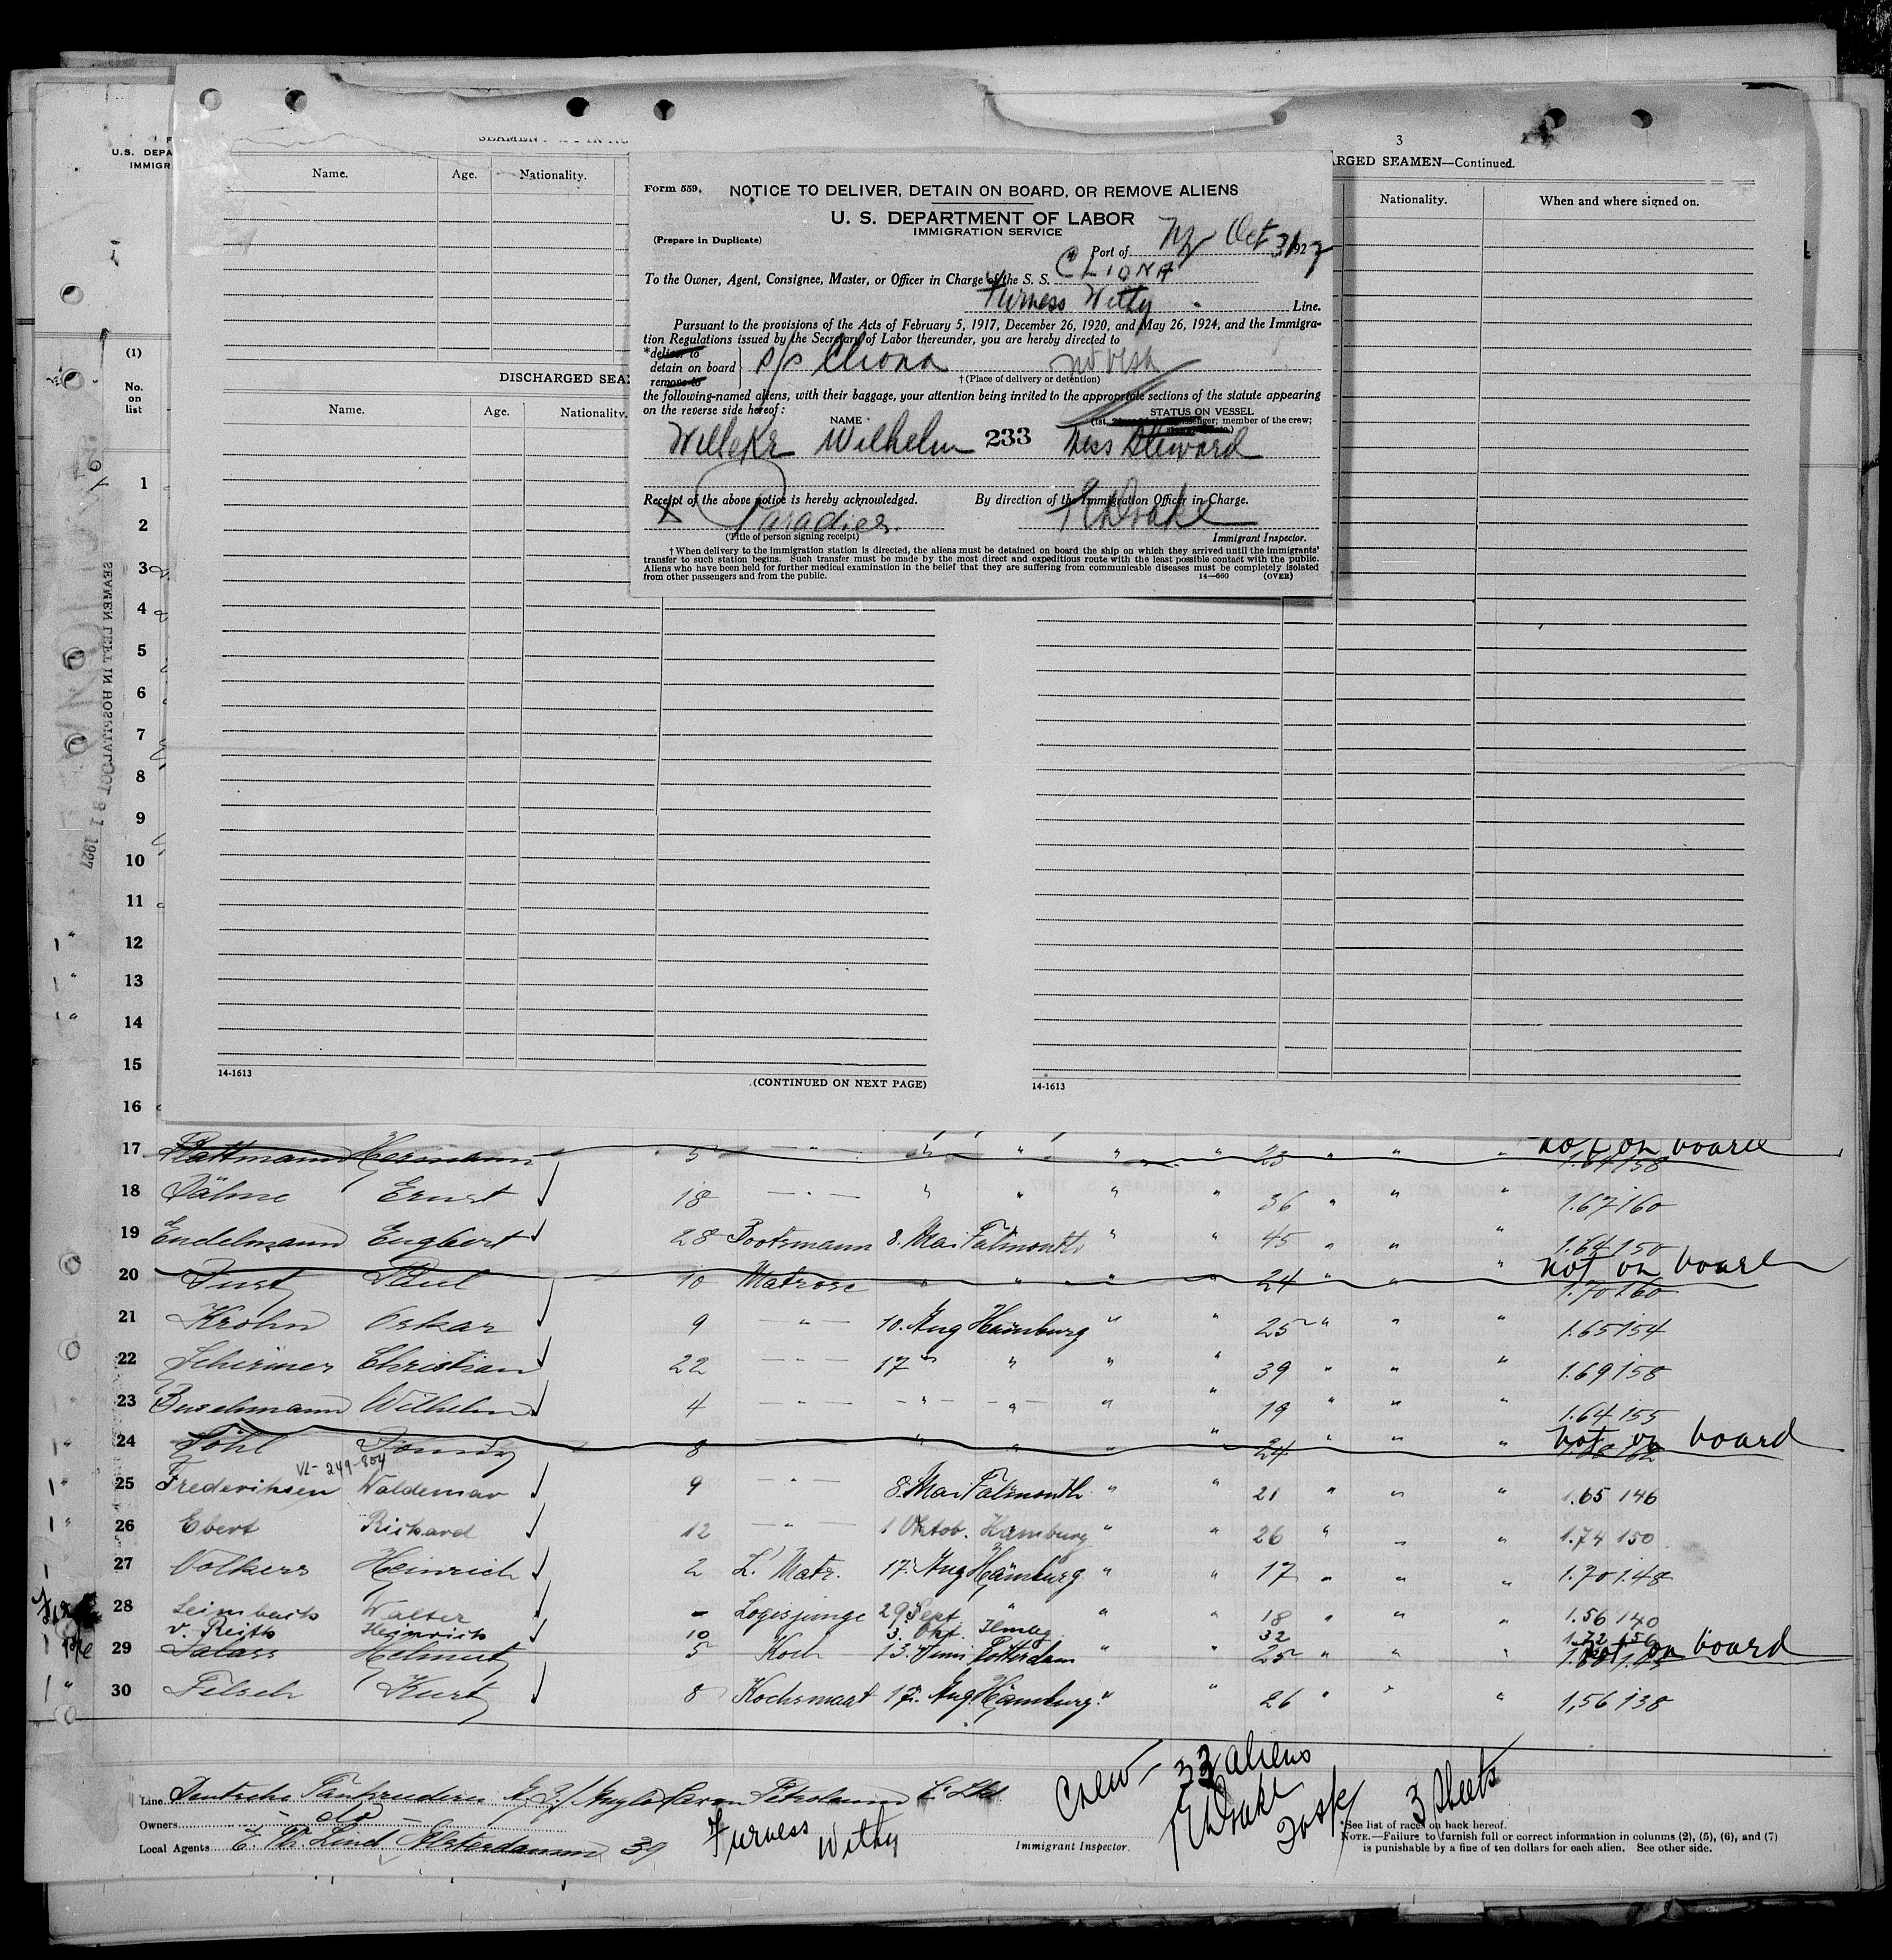 U.S. DEPA
IMMIGR
3
ARGED SEAMEN—Continued.
Name. Age. Nationality.
Nationality. When and where signed on.
Form 559.
NOTICE TO DELIVER, DETAIN ON BOARD, OR REMOVE ALIENS
U. S. DEPARTMENT OF LABOR
IMMIGRATION SERVICE
(Prepare in Duplicate)
Port of Ny Oct 31 1927
To the Owner, Agent, Consignee, Master, or Officer in Charge of the S. S. CLIONA
Furness Withy Line.
Pursuant to the provisions of the Acts of February 5, 1917, December 26, 1920, and May 26, 1924, and the Immigra-
tion Regulations issued by the Secretary of Labor thereunder, you are hereby directed to
*deliver to
detain on board S/S Cliona
remove to
†(Place of delivery or detention)
the following-named aliens, with their baggage, your attention being invited to the appropriate sections of the statute appearing
on the reverse side hereof:
NAME STATUS ON VESSEL
member of the crew;
Wilhelm 233 Mess Steward
Receipt of the above notice is hereby acknowledged. By direction of the Immigration Officer in Charge.
X Paradies. Drake
(Title of person signing receipt) Immigrant Inspector.
†When delivery to the immigration station is directed, the aliens must be detained on board the ship on which they arrived until the immigrants'
transfer to such station begins. Such transfer must be made by the most direct and expeditious route with the least possible contact with the public.
Aliens who have been held for further medical examination in the belief that they are suffering from communicable diseases must be completely isolated
from other passengers and from the public. 14—660 (OVER)
DISCHARGED SEA
Name. Age. Nationality.
(1)
No.
on
list
1
2
3
4
5
6
7
8
9
10
11
12
13
14
15
16
SEAMEN LEFT IN HOSPITAL
OCT 31 1927
14-1613 (CONTINUED ON NEXT PAGE) 14-1613
17 Plattmann Hermann 5 " " " " " 23 " " " not on board 1.64 158
18 Dähne Ernst 18 " " " " " 36 " " " 1.67 160
19 Endelmann Engbert 28 Bootsmann 8. Mai Falmouth " " 45 " " " 1.64 150
20 Just Paul 10 Matrose " " " " 24 " " " not on board 1.70 160
21 Krohn Oskar 9 " 10. Aug Hamburg " " 25 " " " 1.65 154
22 Schirmer Christian 22 " 17 " " " " 39 " " " 1.69 158
23 Buschmann Wilhelm 4 " " " " " 19 " " " 1.64 155
24 8 " " " " 24 " " " not on board
VL-249-804
25 Frederiksen Waldemar 9 " 8. Mai Falmouth " " 21 " " " 1.65 146
26 Ebert Richard 12 " 1 Oktob. Hamburg " " 26 " " " 1.74 150
27 Volkers Heinrich 2 L. Matr. 17. Aug Hamburg " " 17 " " " 1.70 148
28 Leimbach Walter - Logisjunge 29 Sept " " " 18 " " " 1.56 140
v. Reith Heinrich 10 3. Okt. Hmbg 32 1.72 150
29 Helmut 5 Koch 13. Juni Rotterdam " " 25 " " " not on board
30 Felsch Kurt 8 Kochsmaat 17. Aug. Hamburg " " 26 " " " 1,56 138
Crew - 33 aliens
Line Deutsche A. G./ Anglo Saxon Petroleum C. Ltd
Owners - do -
Local Agents E. Th. Lind Alsterdamm 39
Furness Withy
Immigrant Inspector.
Drake
3 Sheets
See list of races on back hereof.
NOTE.—Failure to furnish full or correct information in columns (2), (5), (6), and (7)
is punishable by a fine of ten dollars for each alien. See other side.